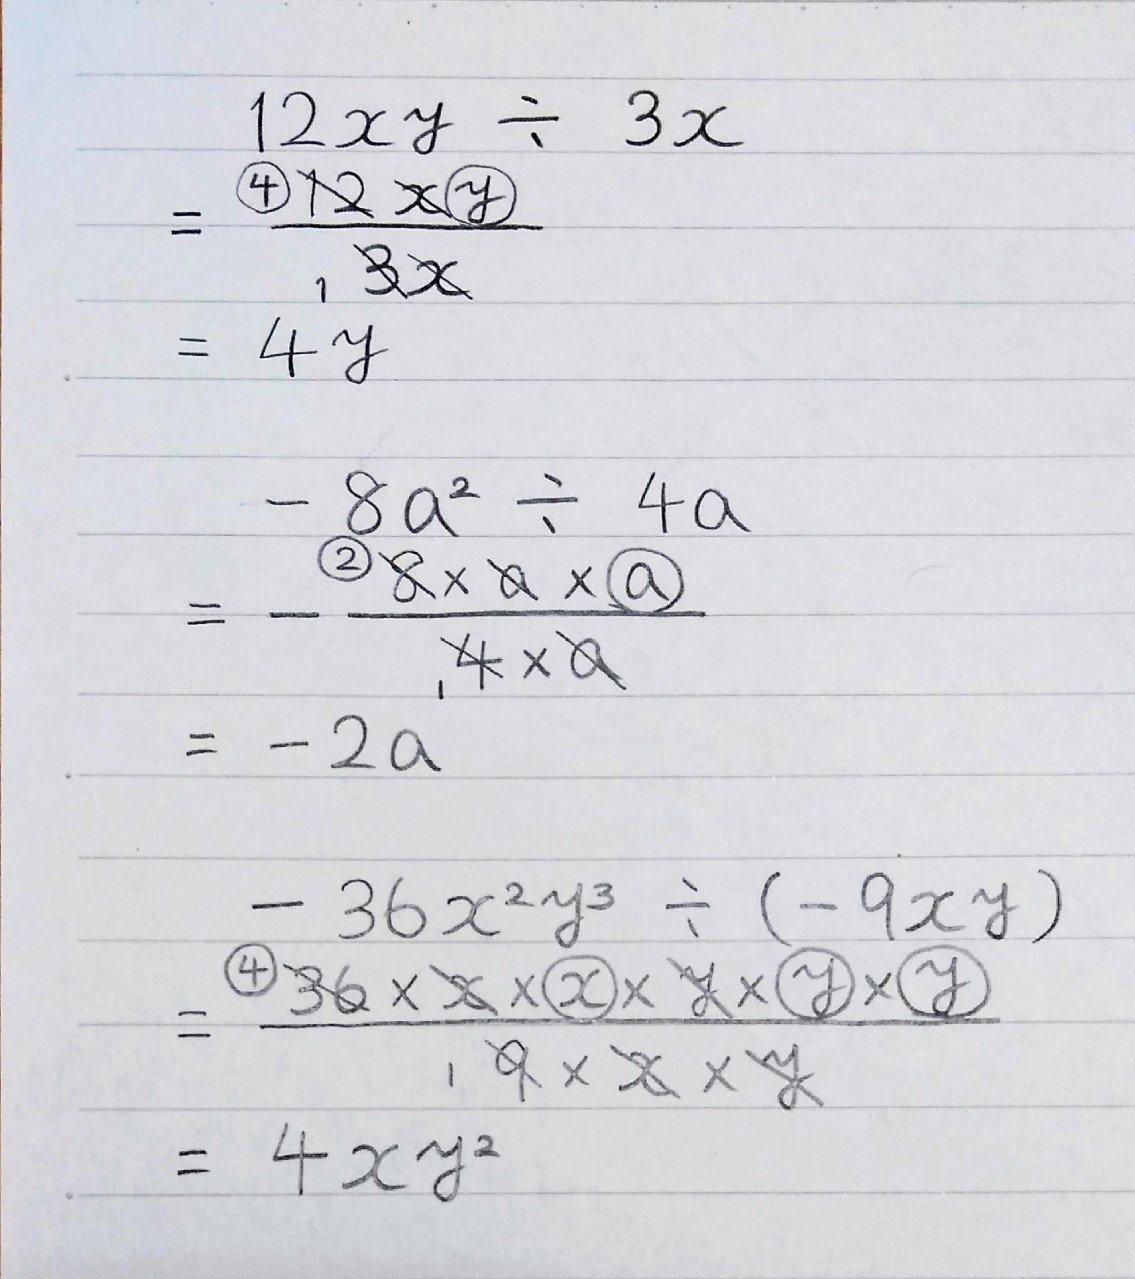 12xy ÷ 3x
④12xy
= ───
1 3x
= 4y
-8a² ÷ 4a
②8×a×a
= - ───
1 4×a
= -2a
-36x²y³ ÷ (-9xy)
④36×x×x×y×y×y
= ───
1 9×x×y
= 4xy²